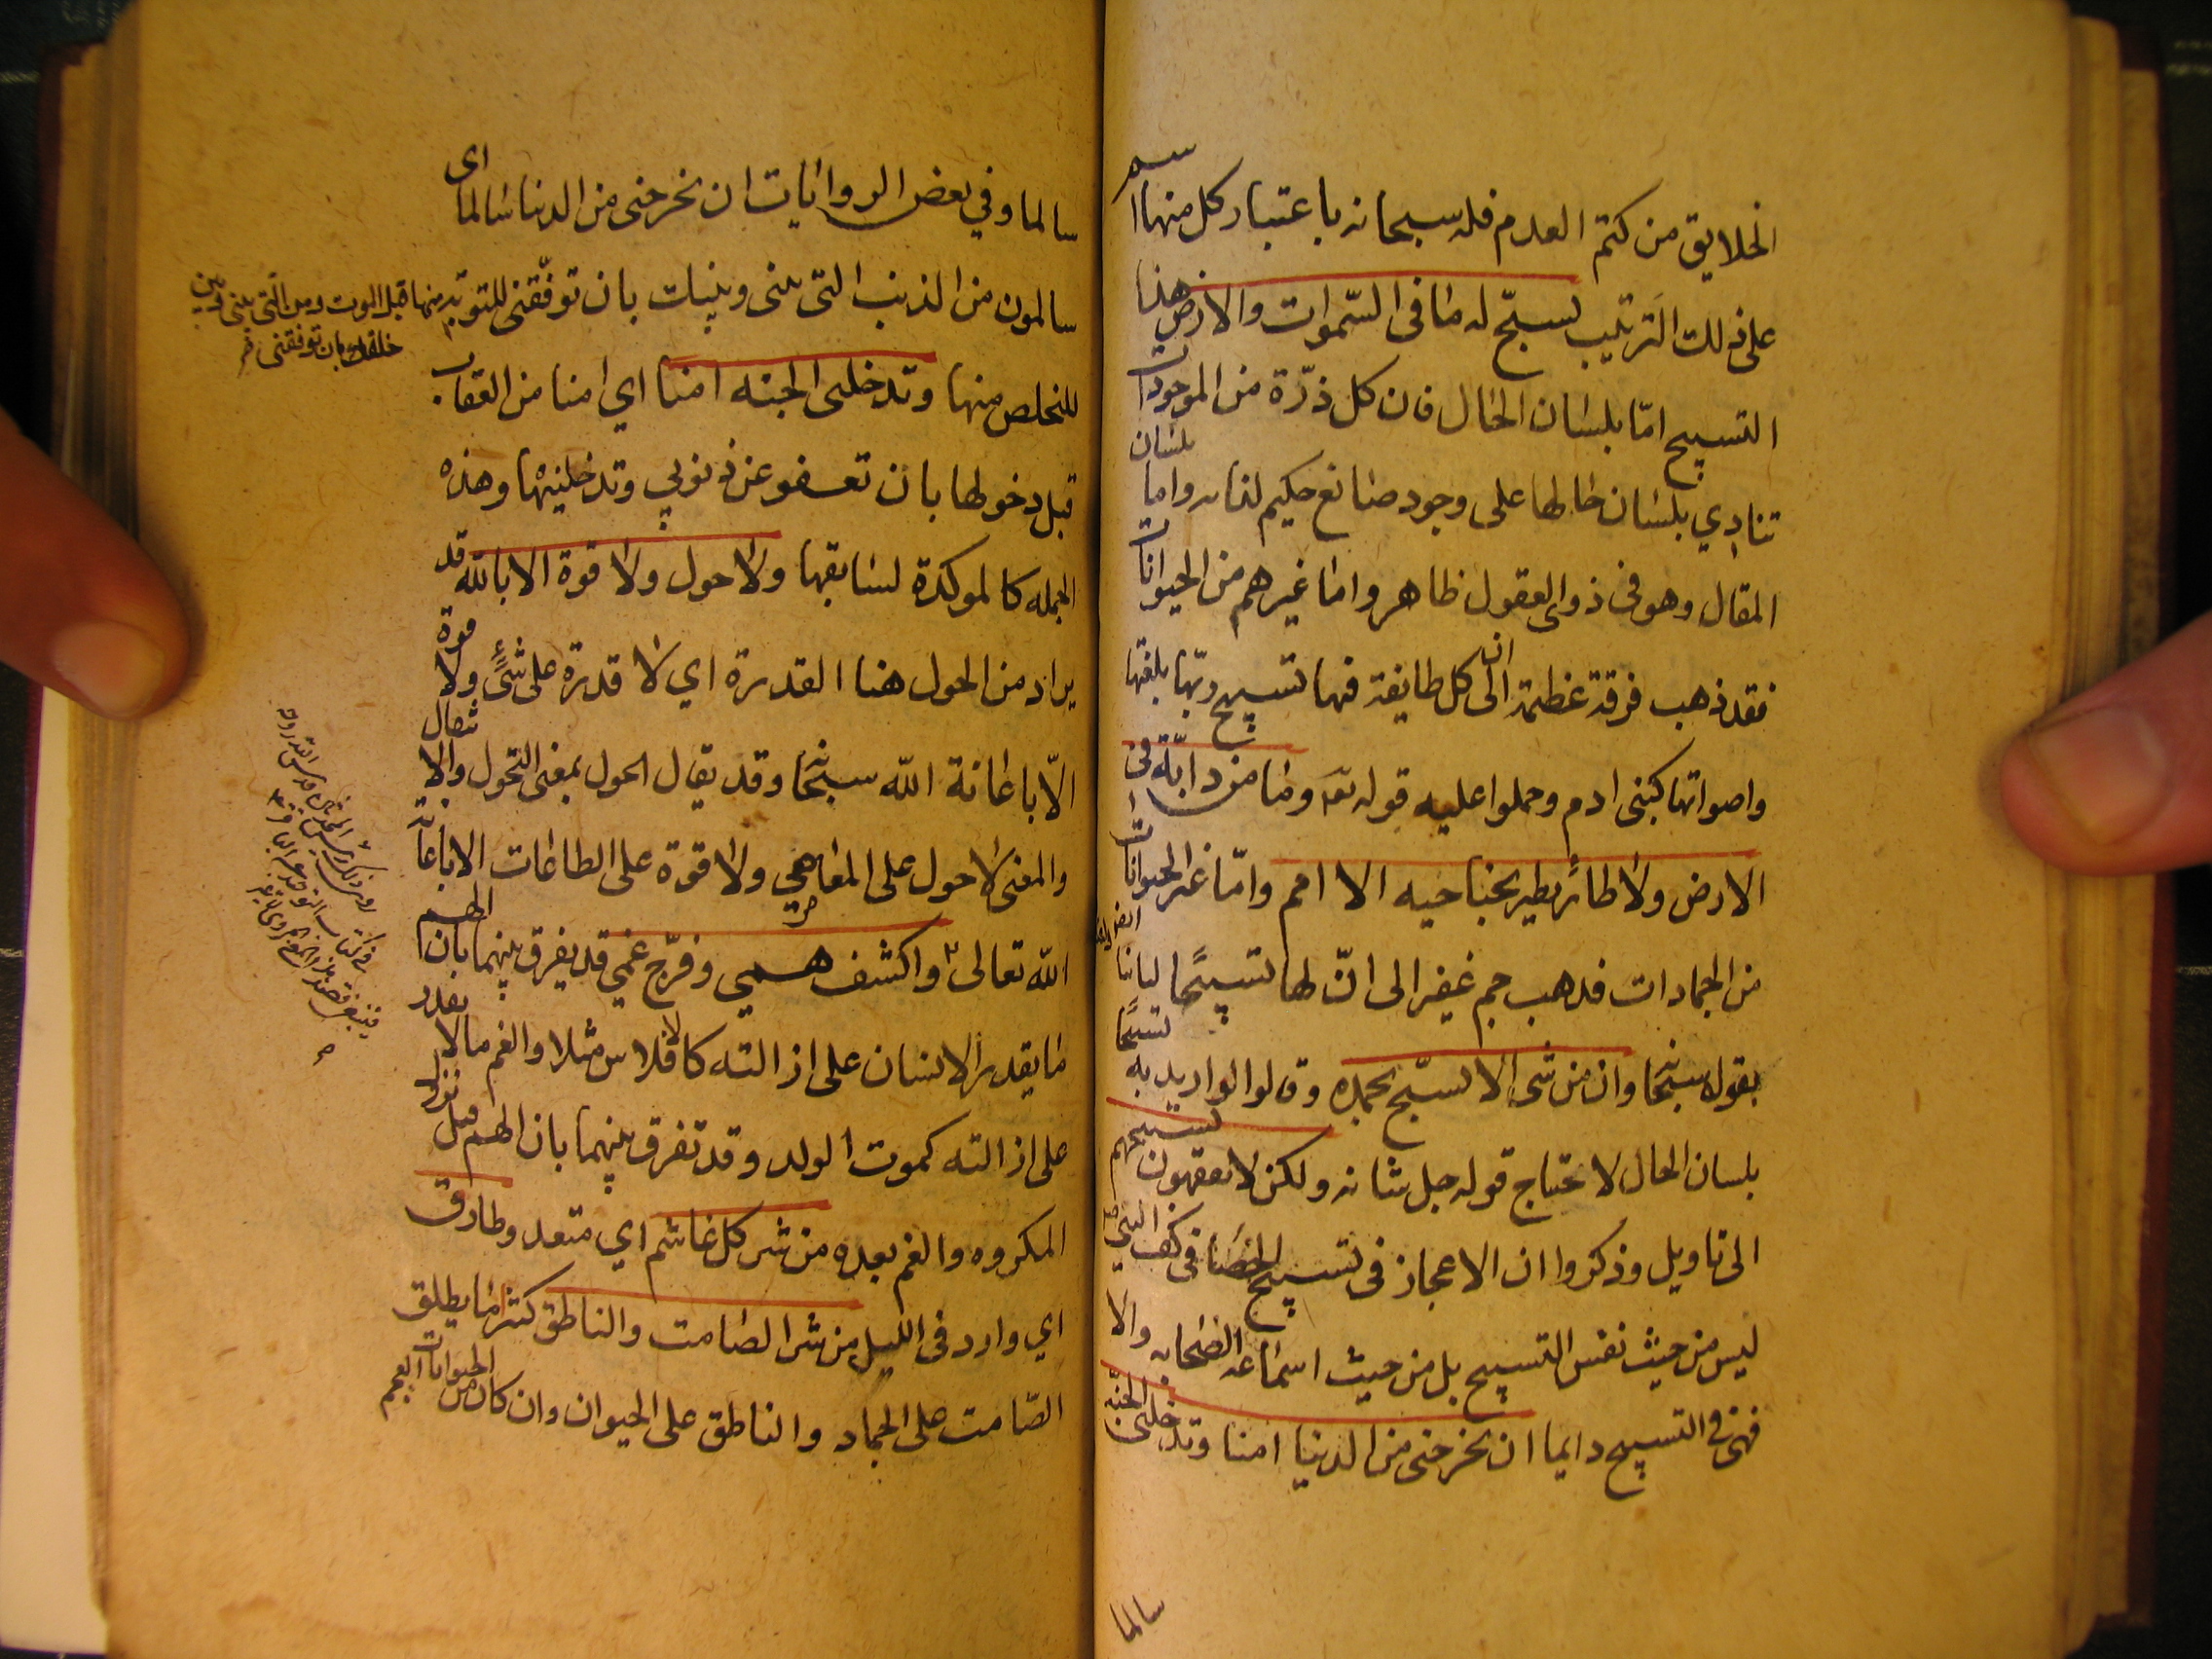 الخلايق من كتم العدم فله سبحانه باعتبار كل منها اسم
على ذلك الترتيب يسبح له ما فى السموات والارض هذا
التسبيح اما بلسان الحال فان كل ذرة من الموجودات
تنادي بلسان حالها على وجود صانع حكيم لذاته واما بلسان
المقال وهو فى ذوى العقول ظاهر واما غيرهم من الحيوانات
فقد ذهب فرقة عظيمة الى ان كل طايفة منها تسبح ربها بلغتها
واصواتها كبنى ادم وحملوا عليه قوله تعه وما من دابة فى
الارض ولا طائر يطير بجناحيه الا امم واما غير الحيوانات
من الجمادات فذهب جم غفير الى ان لها تسبيحا لسانيا
بقوله سبحانه وان من شى الا يسبح بحمده وقالوا لو اريد به تسبيحا
بلسان الحال لاحتاج قوله جل شانه ولكن لا تفقهون تسبيحهم
الى تاويل وذكروا ان الاعجاز فى تسبيح الحصا فى كف النبي
ليس من حيث نفس التسبيح بل من حيث اسماعه الصحابه والا
فهى فى التسبيح دايما ان يخرجنى من الدنيا امنا وتدخلنى الجنة
سالما
سالما وفي بعض الروايات ان تخرجنى من الدنيا سالما اى
سالمون من الذنب التى بينى وبينك بان توفقنى للتوبة منها قبل الموت ومن التى بينى وبين
خلقك بان توفقنى
للتخلص منها وتدخلنى الجنه امنا اي امنا من العقاب
قبل دخولها بان تعفو عن ذنوبي وتدخلنيها وهذه
الجمله كالموكدة لسابقها ولا حول ولا قوة الا بالله قد
يراد من الحول هنا القدرة اي لا قدرة على شئ ولا قوة
الا باعانة الله سبحانه وقد يقال الحول بمعنى التحول والانتقال
والمعنى لا حول على المعاصي ولا قوة على الطاعات الا باعانة
الله تعالى واكشف همي وفرج غمي قد يفرق بينهما بان الهم
ما يقدر الانسان على ازالته كالافلاس مثلا والغم ما لا يقدر
على ازالته كموت الولد وقد تفرق بينهما بان الهم قبل نزول
المكروه والغم بعده من شر كل غاشم اي متعد وطارق
اي وارد فى الليل من شر الصامت والناطق كثيرا ما يطلق
الصامت على الجماد والناطق على الحيوان وان كان من الحيوانات العجم